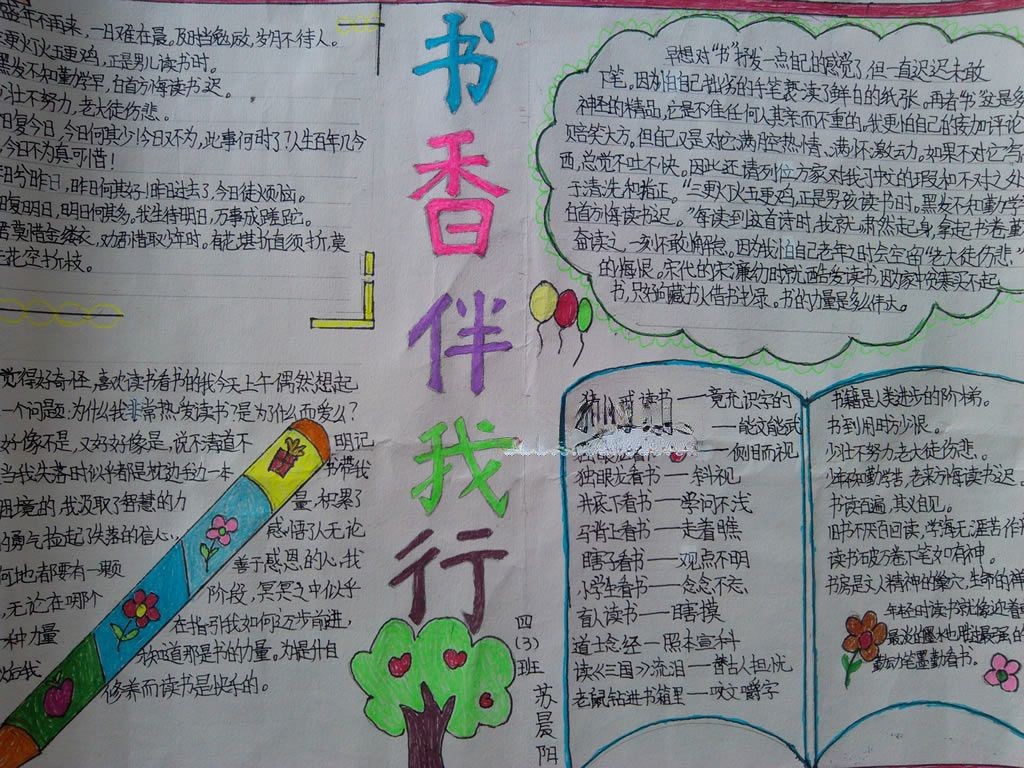 书香伴我行
四(3)班
苏晨阳
盛年不再来，一日难在晨。及时当勉励，岁月不待人。
三更灯火五更鸡，正是男儿读书时。
黑发不知勤学早，白首方悔读书迟。
少壮不努力，老大徒伤悲。
今日复今日，今日何其少！今日不为，此事何时了？人生百年几今
今日不为真可惜！
昨日兮昨日，昨日何其好！昨日过去了，今日徒烦恼。
明日复明日，明日何其多，我生待明日，万事成蹉跎。
君莫惜金缕衣，劝君惜取少年时。有花堪折直须折，莫
花空折枝。
早想对“书”抒发一点自己的感觉了，但一直迟迟未敢
下笔。因为怕自己拙劣的手笔亵渎了鲜白的纸张。再者“书”这是多
神圣的精品，它是不准任何人其亲而不重的。我更怕自己的妄加评论
贻笑大方。但自己又是对它满腔热情、满怀激动。如果不对它写
西，总觉不吐不快。因此还请列位方家对我习中文的瑕和不对之处
于清洗和指正。“三更灯火五更鸡，正是男孩读书时。黑发不知勤学
白首方悔读书迟。”每读到这首诗时，我就肃然起身，拿起书卷
奋读之，一刻不敢懈怠。因为我怕自己老年之时会空留“老大徒伤悲”
的悔恨。宋代的宋濂幼时就酷爱读书，因家中贫寒买不起
书，只好向藏书人借书抄录。书的力量是多么伟大。
觉得好奇怪，喜欢读书看书的我今天上午偶然想起
一个问题：为什么我非常热爱读书？是为什么而爱么？
好像不是，又好好像是，说不清道不 明记
当我失落时似乎都是枕边手边一本 书带我
困境的，我汲取了智慧的力 量，积累了
的勇气捡起了失落的信心。 感悟了人无论
何地都要有一颗 善于感恩的心，我
，无论在哪个 阶段，冥冥之中似乎
一种力量 在指引我如何迈步前进，
我知道那是书的力量。为提升自
修养而读书是快乐的。
读书——竟充识字的
——能文能武
——侧目而视
独眼龙看书——斜视
井底下看书——学问不浅
马背上看书——走着瞧
瞎子看书——观点不明
小学生看书——念念不忘
盲人读书——瞎摸
道士念经—照本宣科
读《三国》流泪—替古人担忧
老鼠钻进书箱里—咬文嚼字
书籍是人类进步的阶梯。
书到用时方少恨。
少壮不努力老大徒伤悲。
少年不知勤学苦，老来方悔读书迟。
书读百遍，其义自见。
旧书不厌百回读，学海无涯苦作
读书破万卷下笔如有神。
书房是文人精神的巢穴，生命的禅
年轻时读书就像迎着
最淡的墨水也胜过最强的
勤动笔墨勤看书。